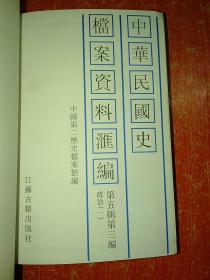 中華民國史
檔案資料滙編
第五輯第三編
政治(一)
中國第二歷史檔案館編
江蘇古籍出版社